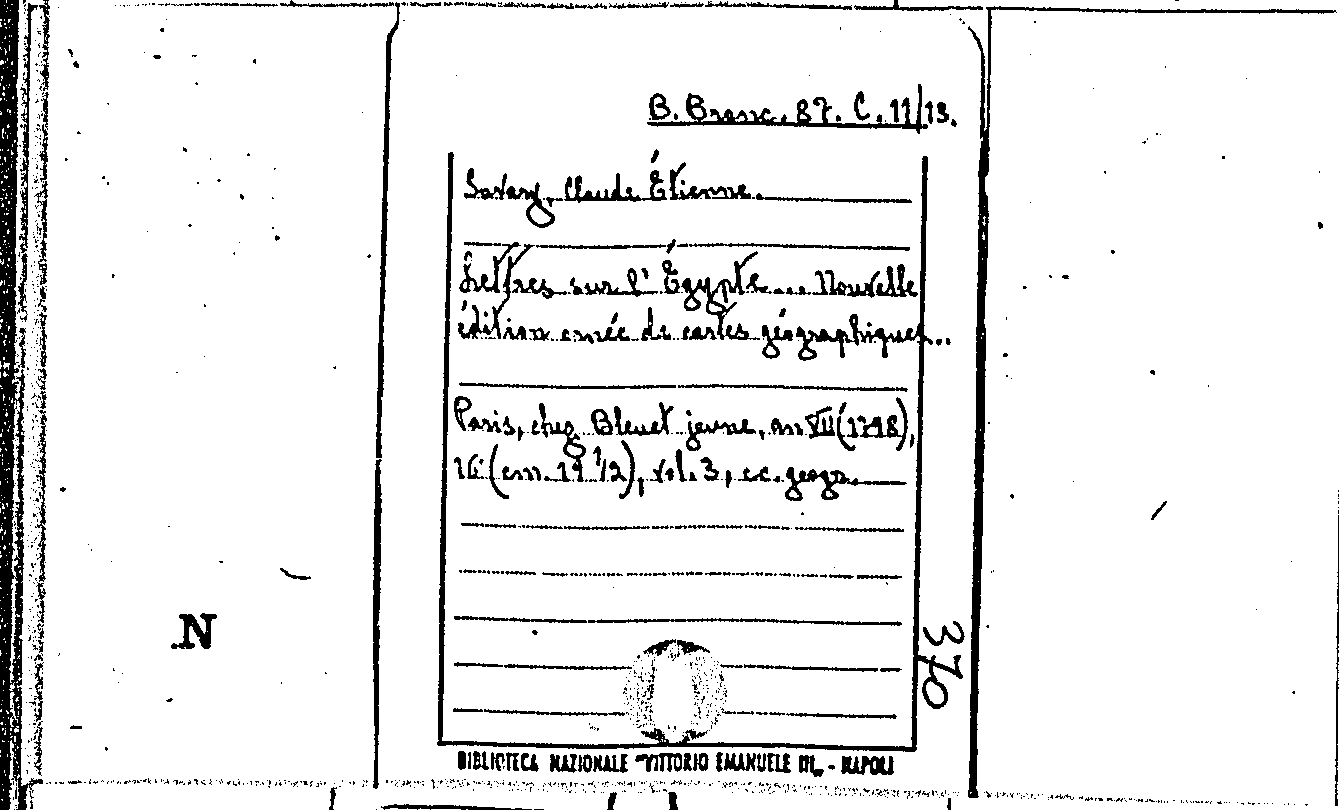 B. Branc. 87. C. 11/13.
Savary, Claude Étienne.
Lettres sur l'Égypte... Nouvelle
édition ornée de cartes géographiques...
Paris, chez Bleuet jeune, an VII (1798),
16° (cm. 19 1/2), vol. 3, cc. geogr.
N
370
BIBLIOTECA NAZIONALE "VITTORIO EMANUELE III„ - NAPOLI